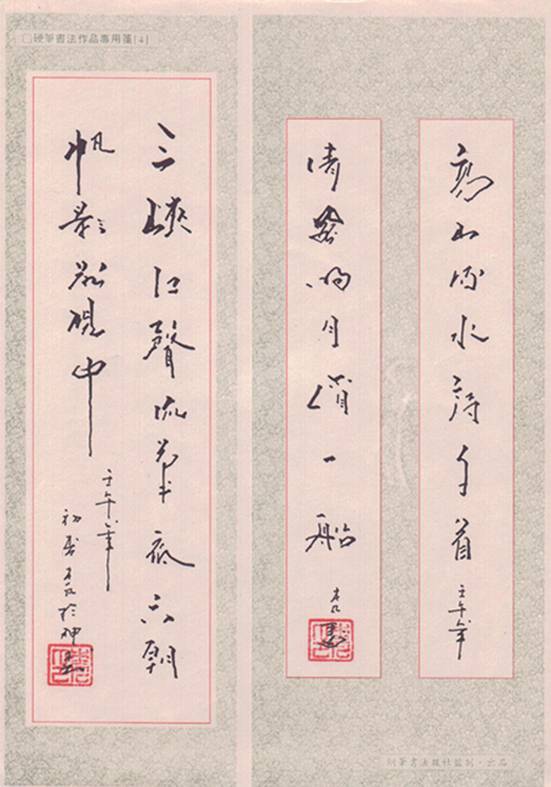 硬筆書法作品專用箋[4]
高山流水詩千首
壬午年
清風明月一船
三峽江聲流筆底六朝
帆影落硯中
壬午年
初春於
書法報社監制·出品